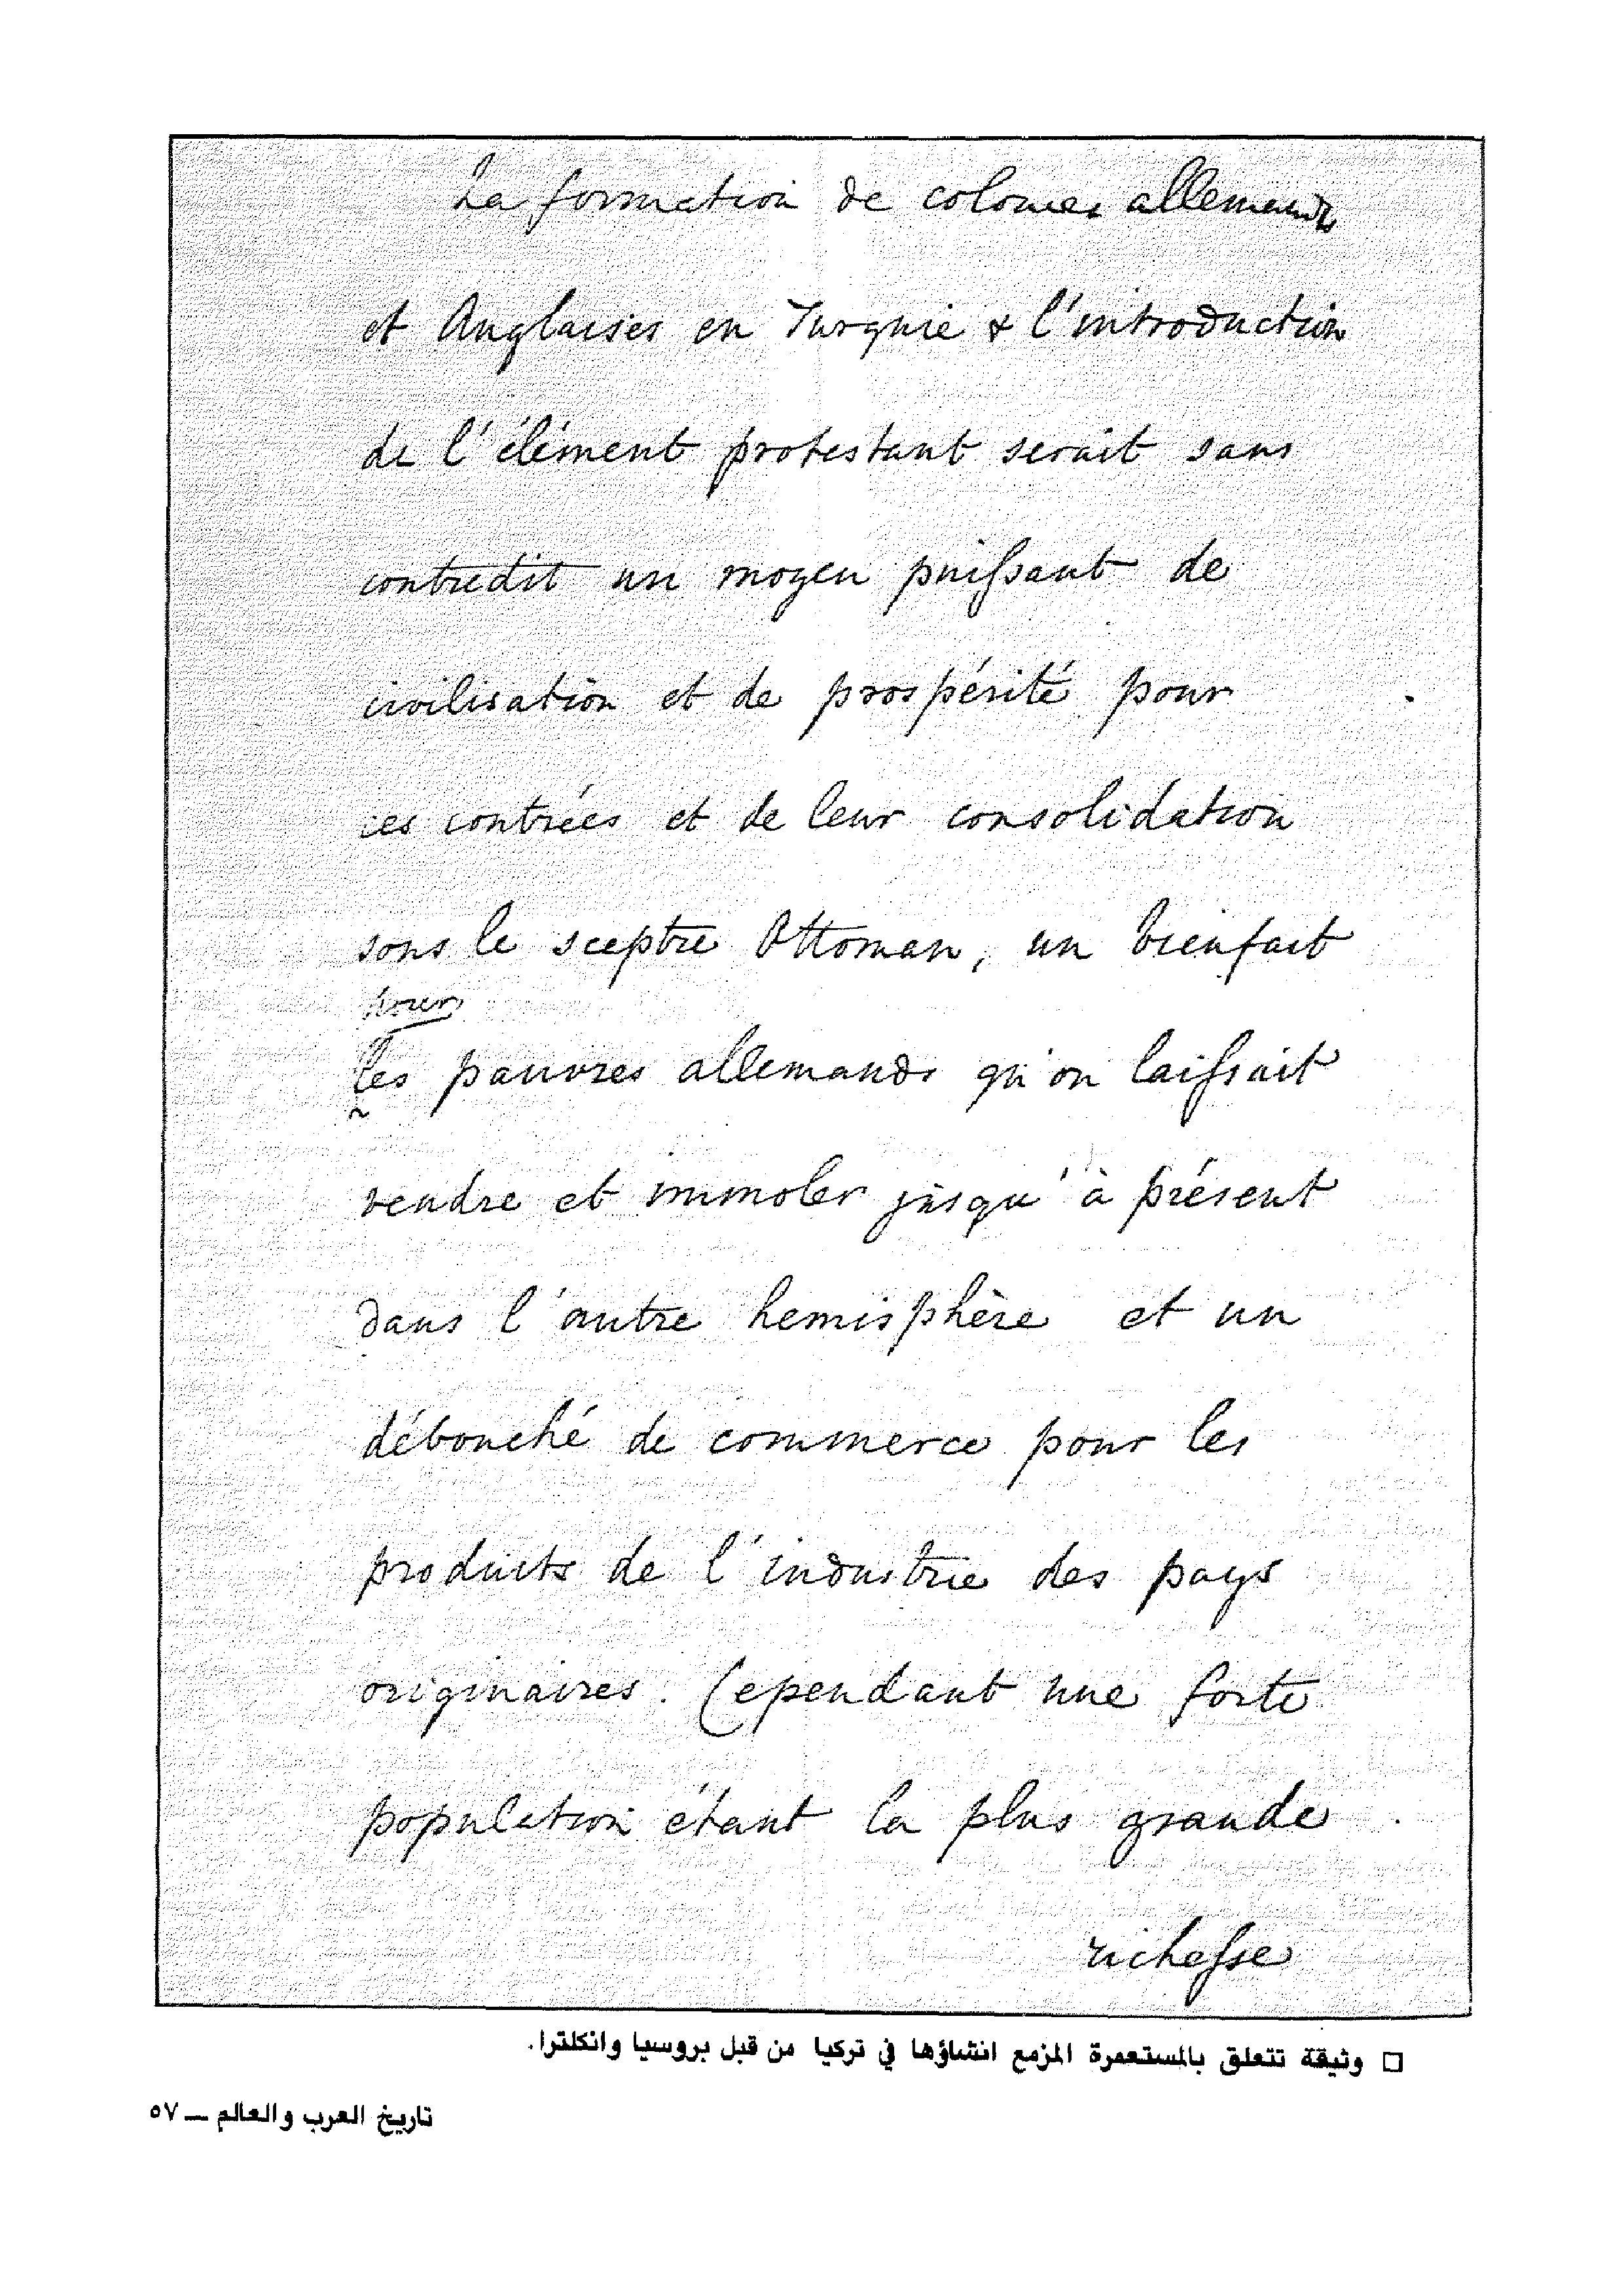 La formation de colonies allemandes
et Anglaises en Turquie & l'introduction
de l'élément protestant serait sans
contredit un moyen puissant de
civilisation et de prospérité pour
ces contrées et de leur consolidation
sous le sceptre Ottoman, un bienfait
pour
les pauvres allemands qu'on laissait
vendre et immoler jusqu'à présent
dans l'autre hemisphère et un
débouché de commerce pour les
produits de l'industrie des pays
originaires. Cependant une forte
population étant la plus grande
richesse
□ وثيقة تتعلق بالمستعمرة المزمع انشاؤها في تركيا من قبل بروسيا وانكلترا.
تاريخ العرب والعالم — ٥٧